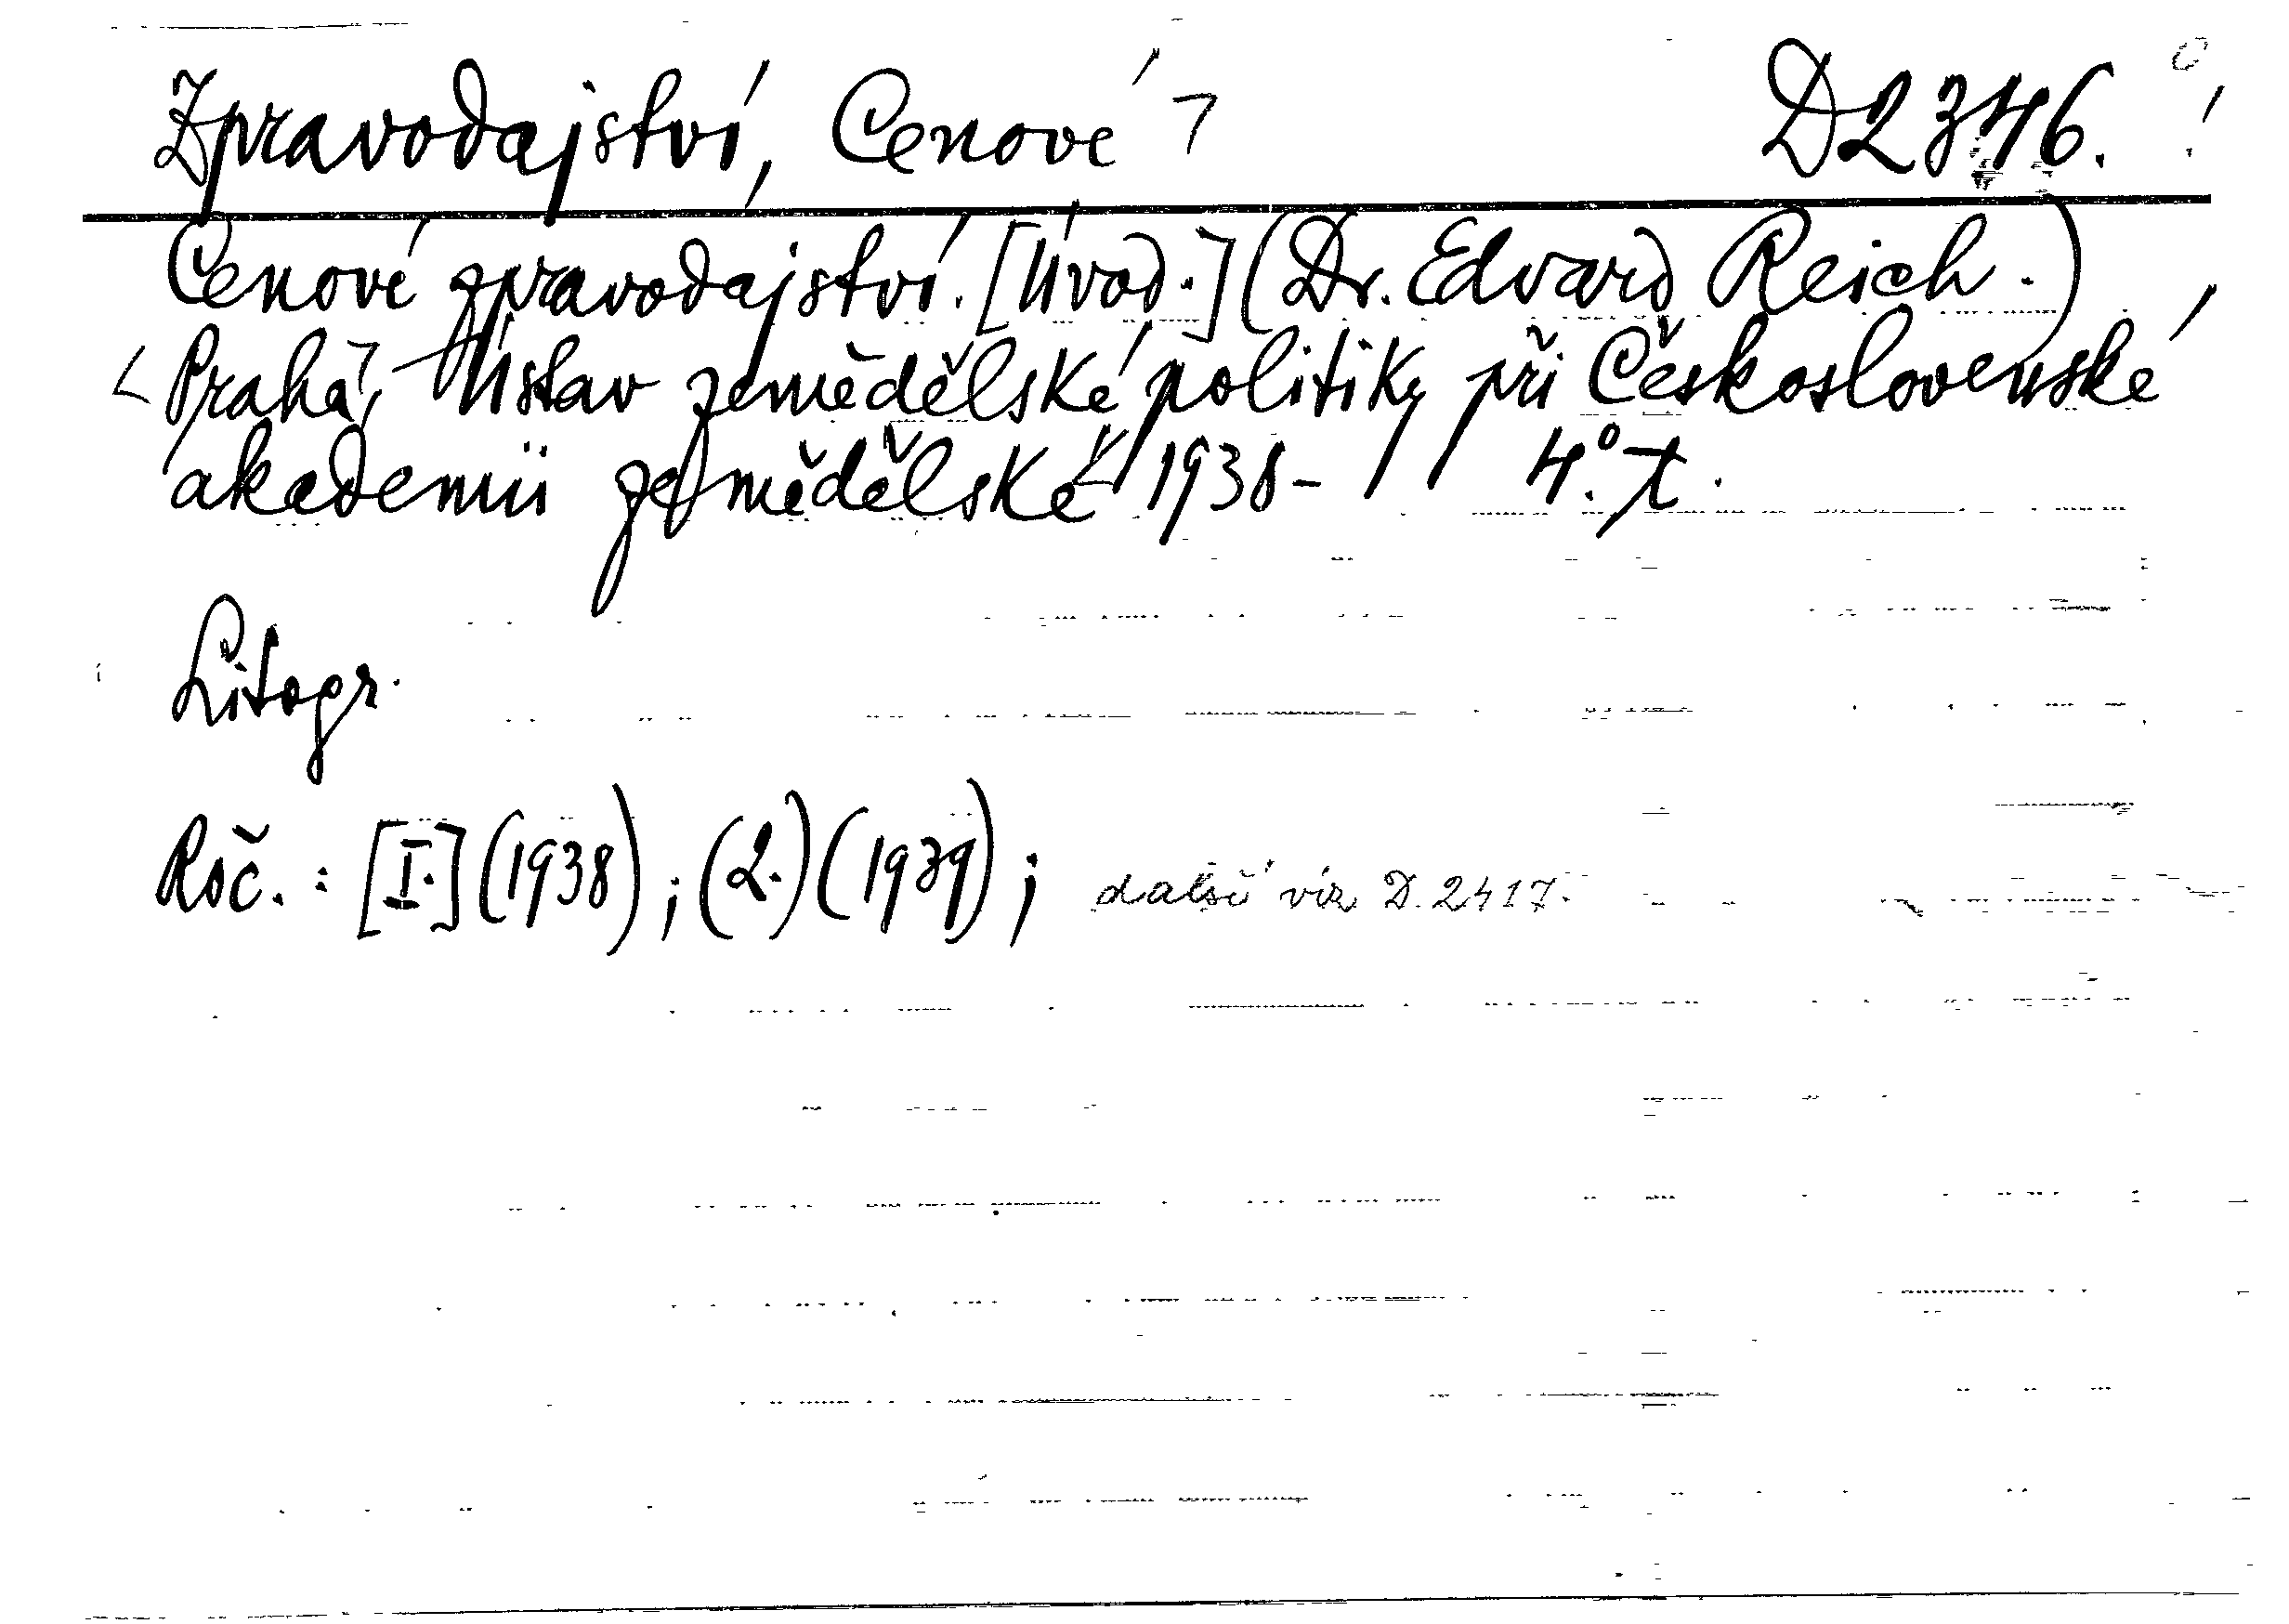 Zpravodajství, Cenové ┐ D 2346.
Cenové zpravodajství. [Úvod.] (Dr. Edvard Reich.)
< Praha, Ústav zemědělské politiky při Československé
akademii zemědělské 1938- 4°. t.
Litogr.
Roč. : [I.] (1938) ; (2.) (1939) ; další viz D. 2417.